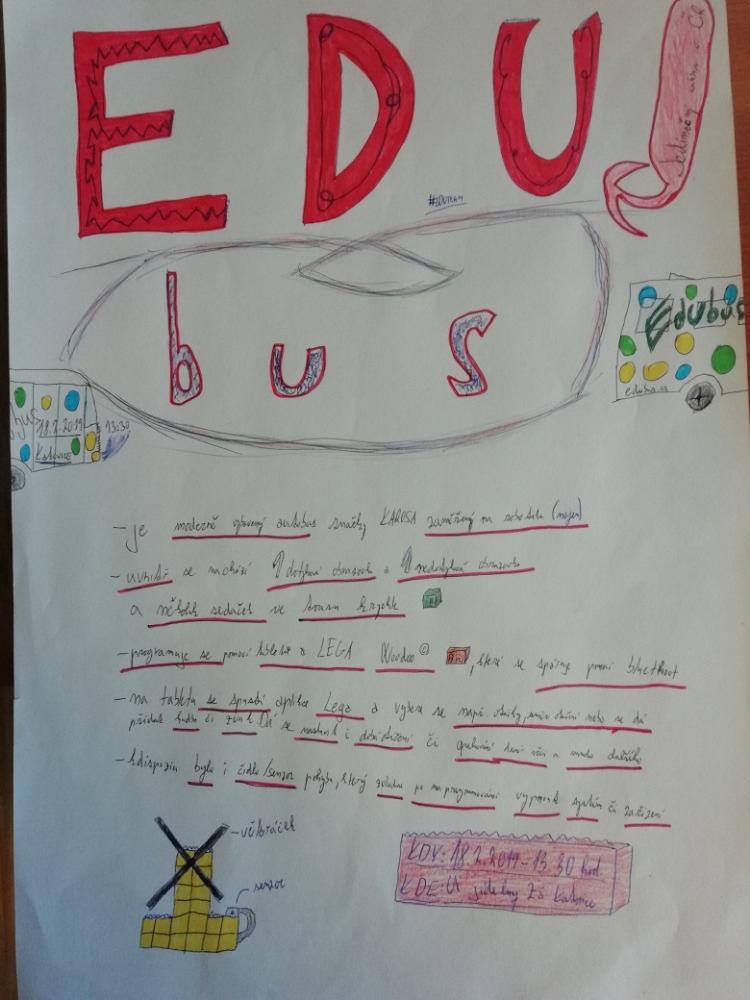 EDU
Jedinečný
#EDUTEAM
bus
Edubus
edubus.cz
bus
18.2.2019
13:30
Katovice
- je moderně vybavený autobus značky KAROSA zaměřený na robotiku (nejen)
- uvnitř se nachází 1 dotyková obrazovka a 1 nedotyková obrazovka
a několik sedaček ve tvaru krychle
- programuje se pomocí tabletu a LEGA Woodoo, které se spáruje pomocí bluethoot
- na tabletu se spustí aplikace Lego a vybere se např. otáčky, směr otáčení nebo se dá
přidat hudba či zvuk. Dá se nastavit i doba otáčení či opakování té věci a mnoho dalšího
- K dispozici bylo i čidlo/senzor pohybu, který zvládne po naprogramování vypnout systém či zařízení
větráček
senzor
KDY: 18.2.2019 - 13.30 hod.
KDE: U jídelny ZŠ Katovice